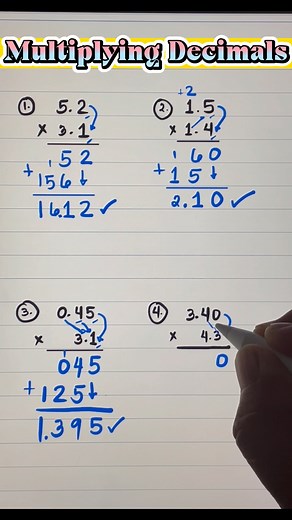 Multiplying Decimals
1. 5.2
x 3.1
1 52
+ 156↓
16.12 ✓
2. +2
1.5
x 1.4
1 60
+ 15↓
2.10 ✓
3. 0.45
x 3.1
1
045
+ 125↓
1.395 ✓
4. 3.40
x 4.3
0